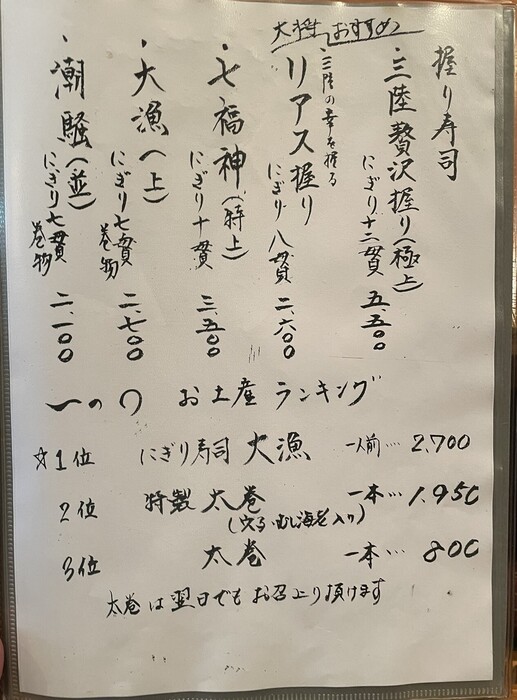 握り寿司
・三陸贅沢握り(極上)
にぎり十二貫 五、五〇〇
大将おすすめ
・三陸の幸を握る
リアス握り
にぎり八貫 二、六〇〇
・七福神(特上)
にぎり十貫 三、五〇〇
・大漁(上)
にぎり七貫 巻物 二、七〇〇
・潮騒(並)
にぎり七貫 巻物 二、一〇〇
お土産 ランキング
☆1位 にぎり寿司 大漁 一人前… 2,700
2位 特製 太巻 一本… 1,950
(穴子・むし海老入り)
3位 太巻 一本… 800
太巻は翌日でもお召上り頂けます